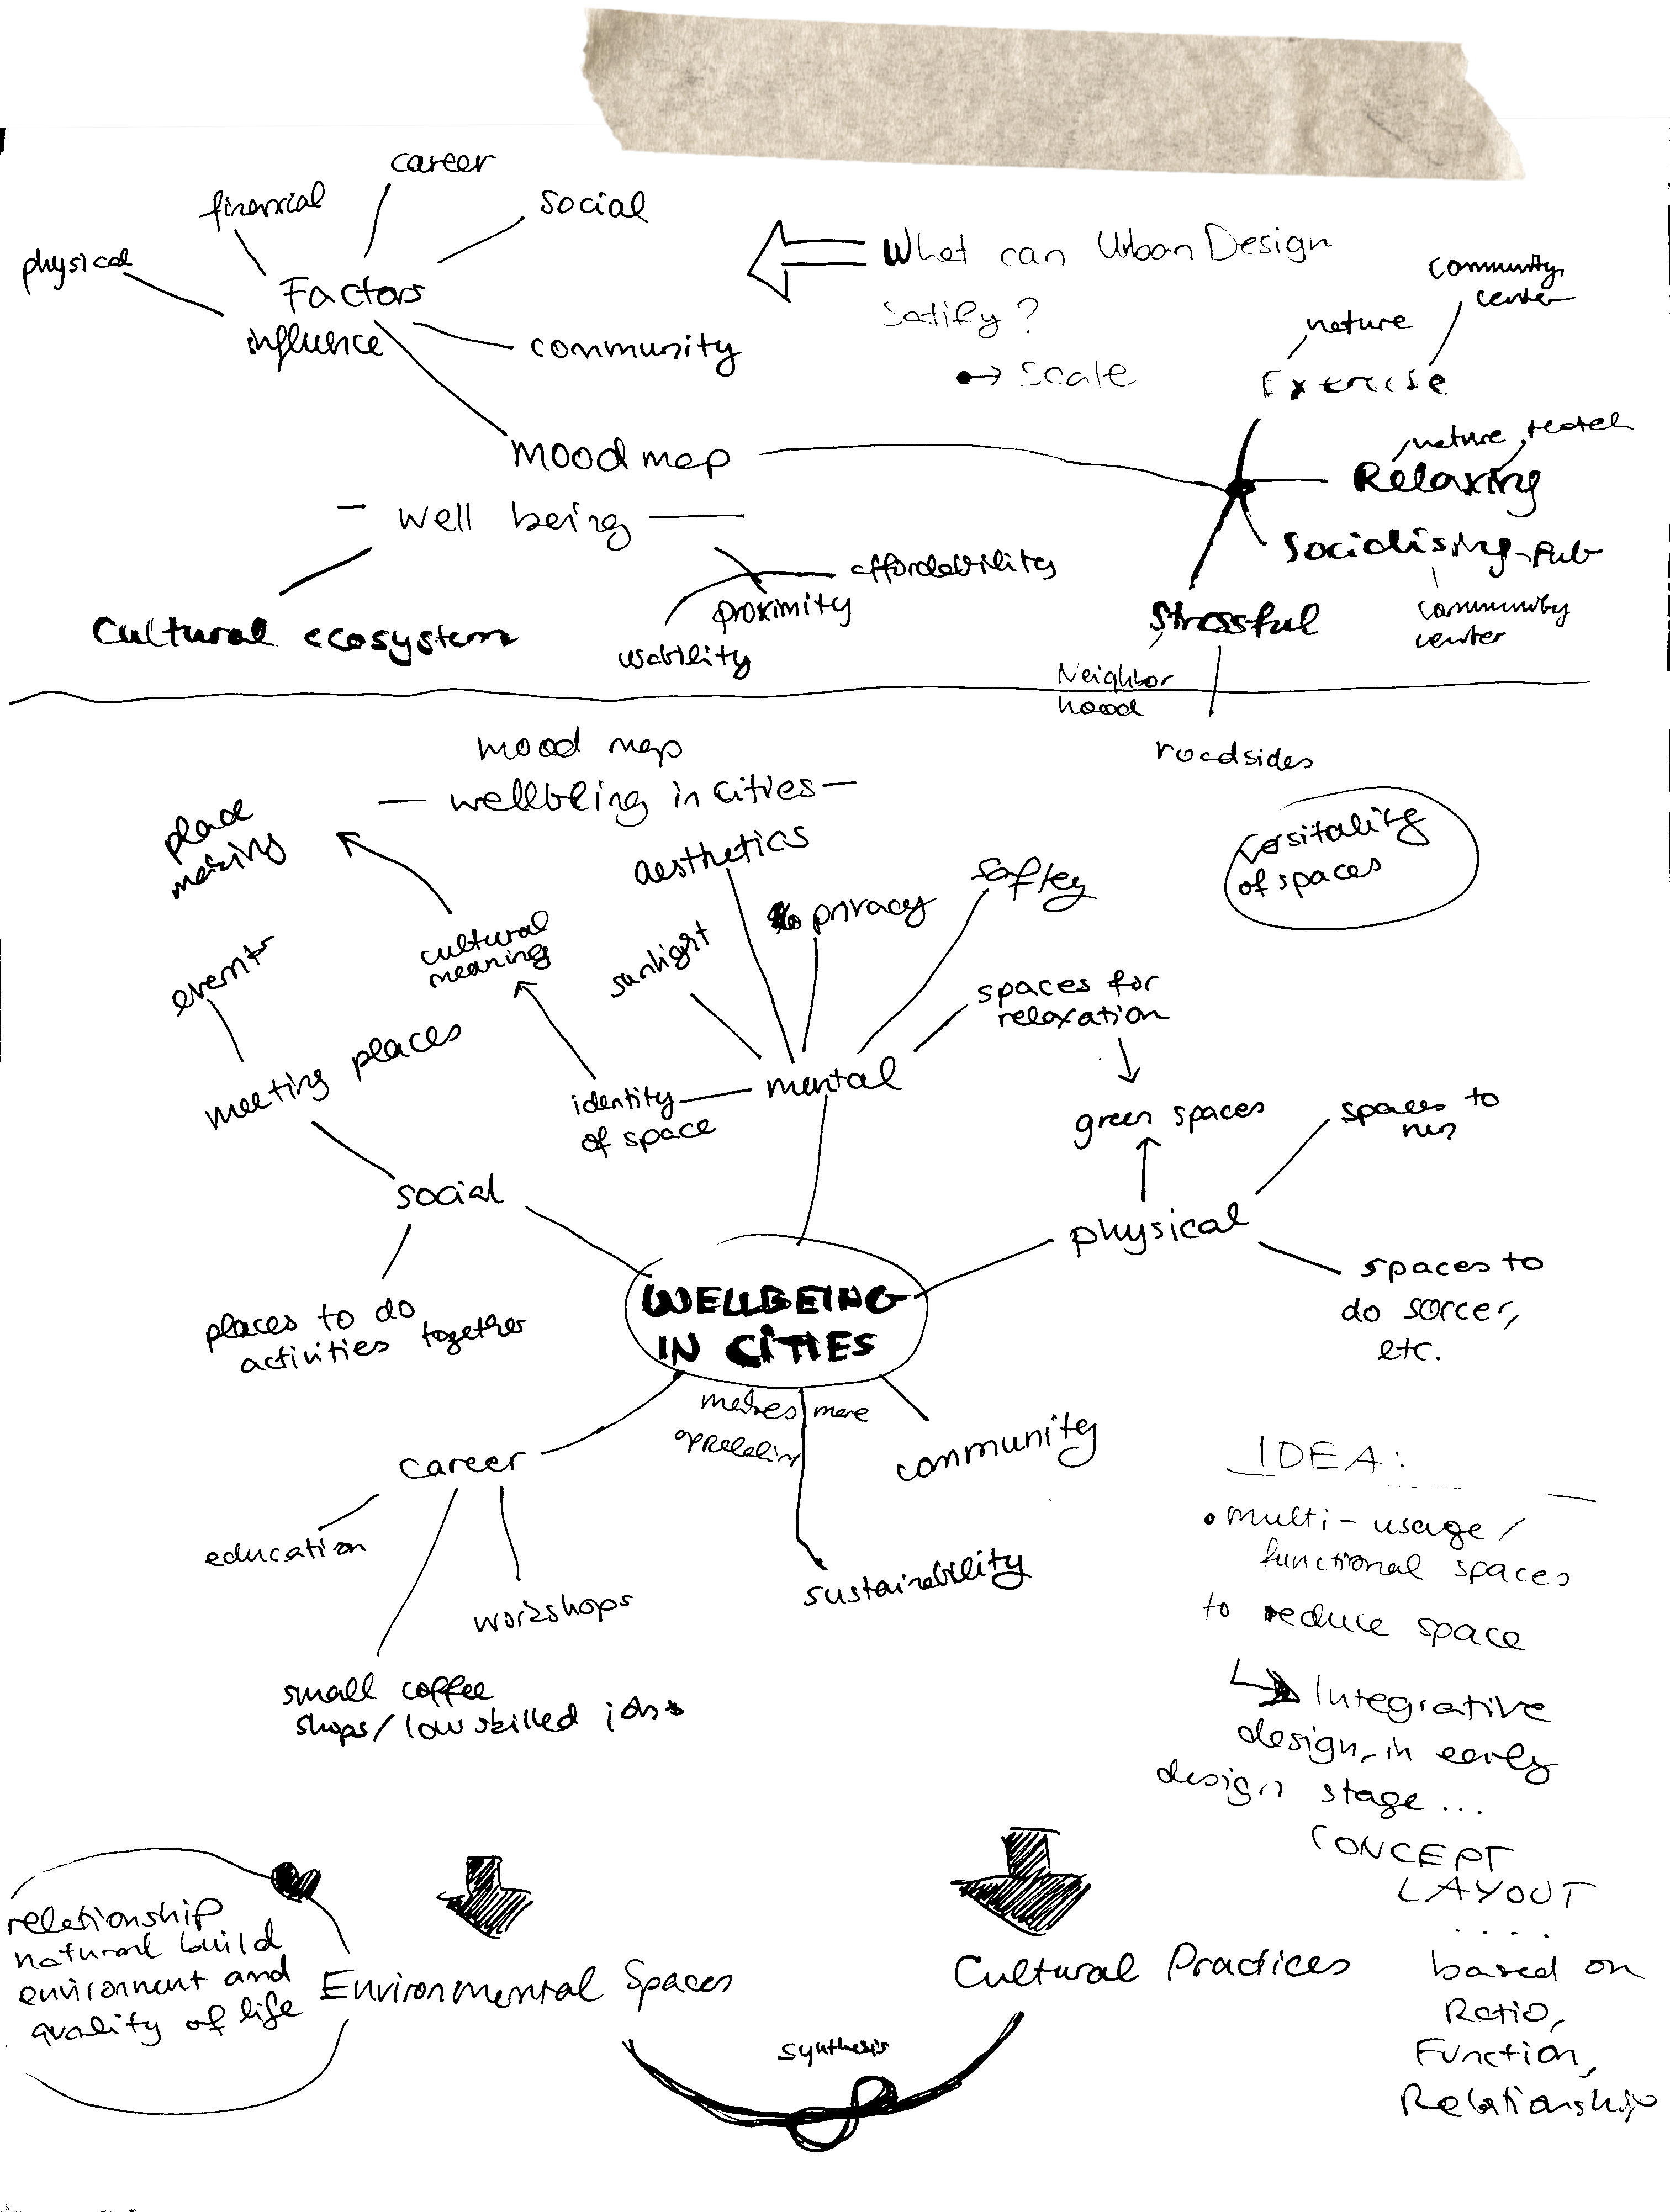 career
financial
social
physical
Factors
influence
community
What can Urban Design
Satify?
Scale
community
center
nature
Exercise
mood map
nature,
Relaxing
well being
Socialising - Pub
community
center
affordability
proximity
usability
Cultural ecosystem
Stressful
Neighbor
hood
roadsides
mood map
wellbeing in cities
place
making
aesthetics
privacy
safety
Versitality
of spaces
cultural
meaning
sunlight
events
meeting places
spaces for
relaxation
mental
identity
of space
green spaces
spaces to
run
social
physical
places to do
activities together
WELLBEING
IN CITIES
spaces to
do soccer,
etc.
makes more
community
career
education
workshops
sustainability
small coffee
shops/low skilled jobs
IDEA:
multi-usage/
functional spaces
to reduce space
Integrative
design in early
design stage...
CONCEPT
LAYOUT
.....
based on
Ratio,
Function,
Relationship
relationship
natural build
environment and
quality of life
Environmental Spaces
Cultural Practices
synthesis